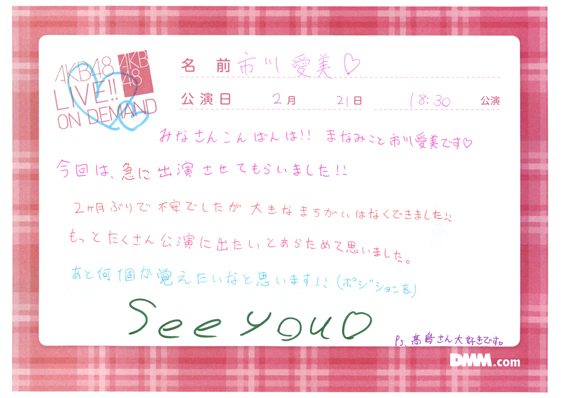 AKB48
LIVE!!
ON DEMAND
AKB
48
名 前 市川 愛美♡
公演日 2月 21日 18:30 公演
みなさんこんばんは!! まなみこと市川愛美です♡
今回は、急に出演させてもらいました!!
2ヶ月ぶりで不安でしたが大きなまちがいはなくできました!!
もっとたくさん公演に出たいとあらためて思いました。
あと何個か覚えたいなと思います!! (ポジションを)
See you♡
Ps. 高島さん大好きです。
DMM.com